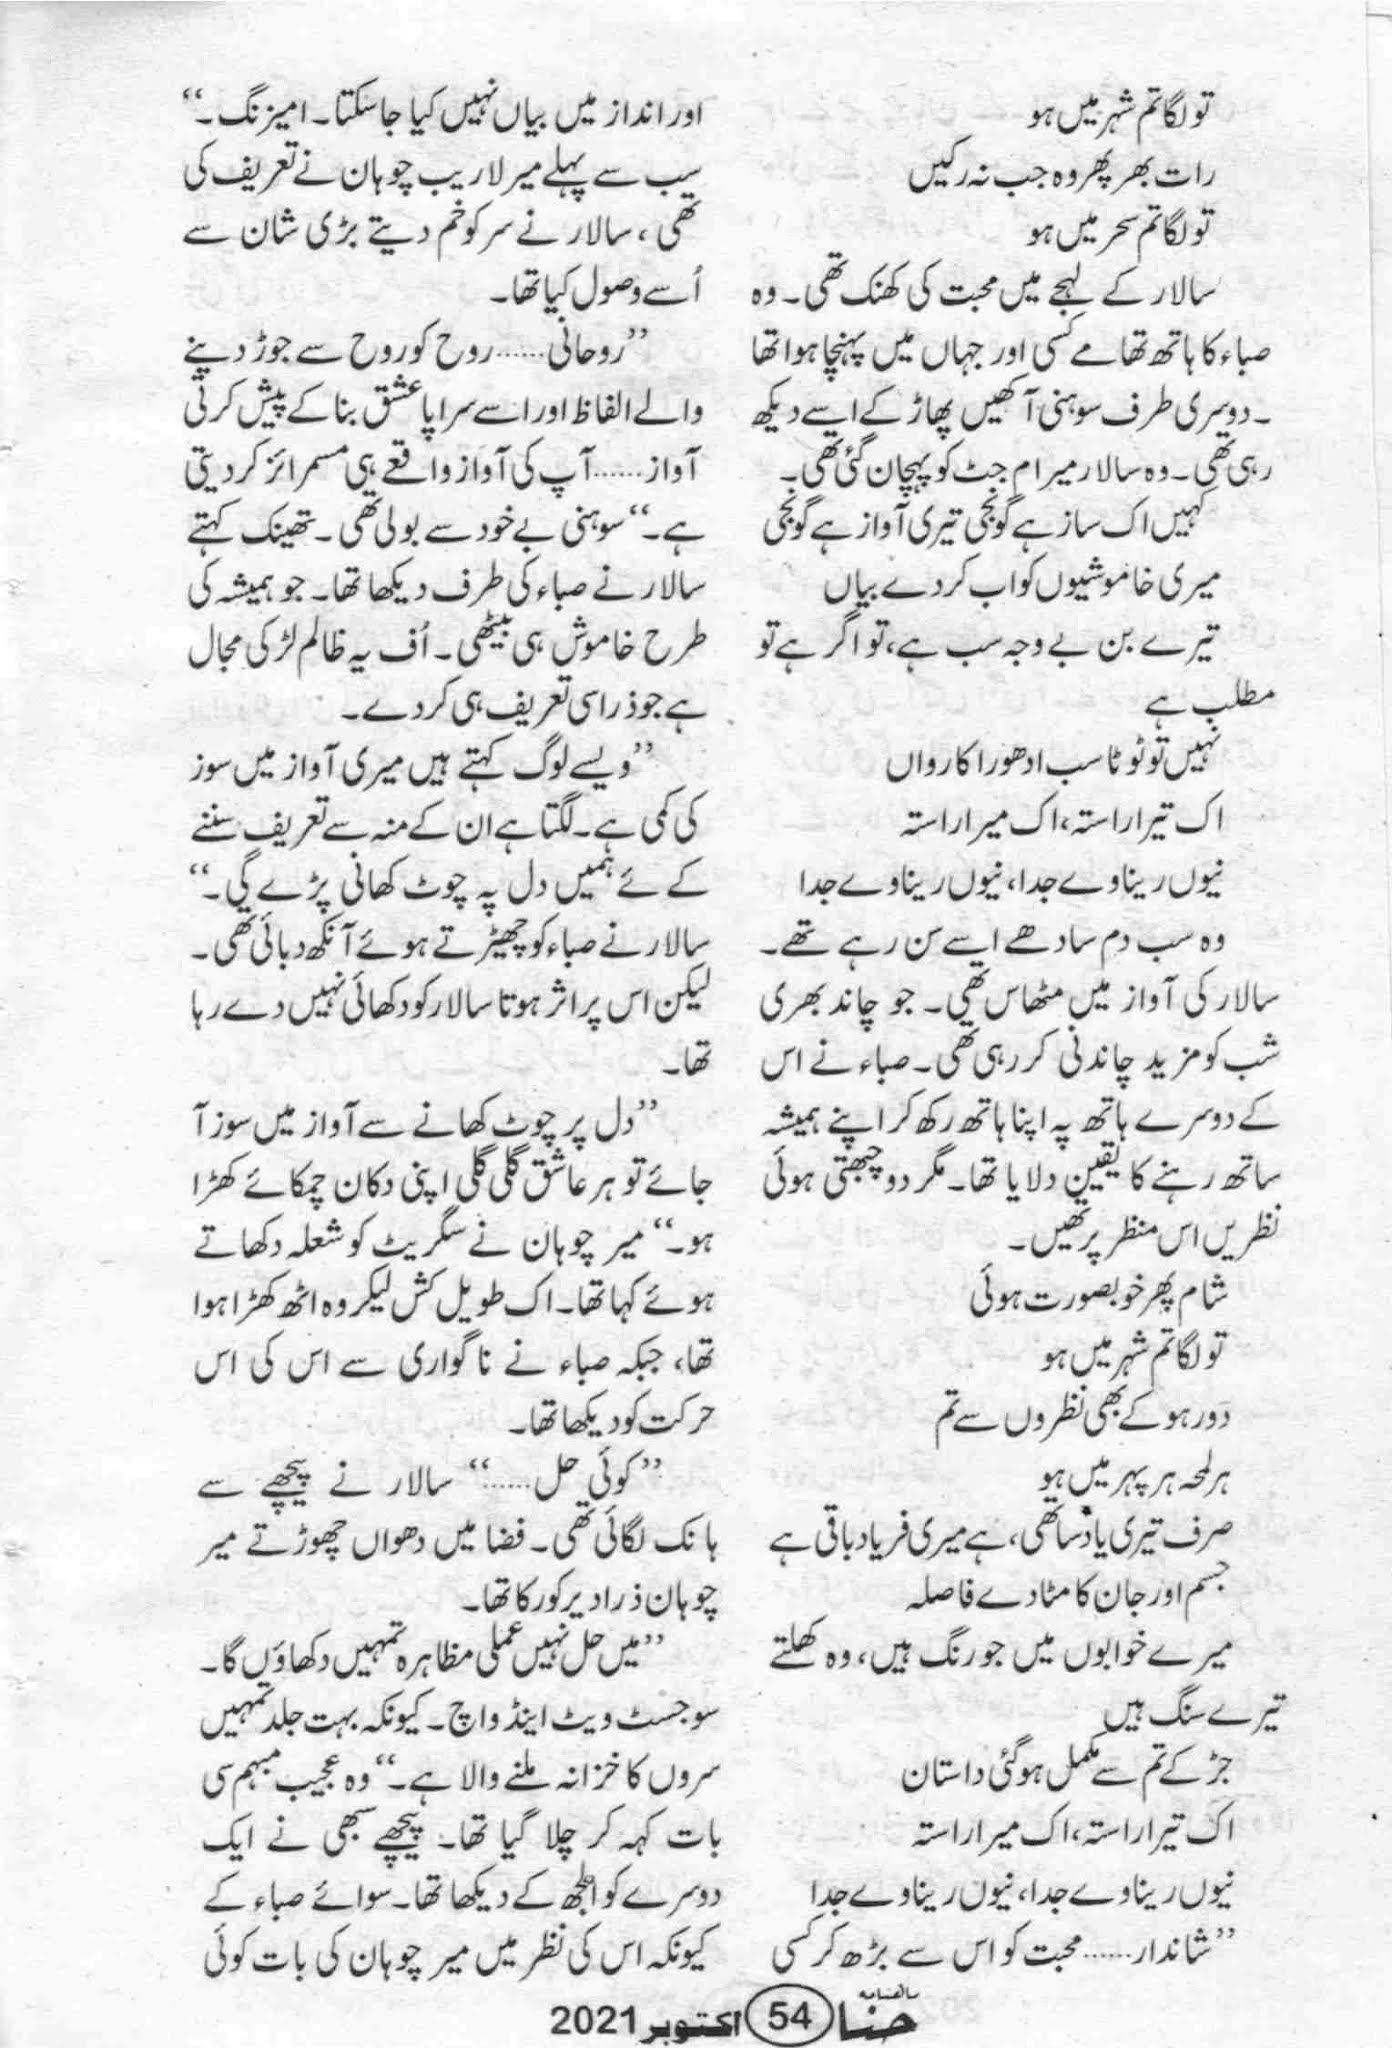 تو لگا تم شہر میں ہو
رات بھر پھر وہ جب نہ رکیں
تو لگا تم سحر میں ہو
سالار کے لہجے میں محبت کی کھنک تھی۔ وہ
صباء کا ہاتھ تھامے کسی اور جہاں میں پہنچا ہوا تھا
۔ دوسری طرف سوہنی آنکھیں پھاڑ کے اسے دیکھ
رہی تھی۔ وہ سالار میرام جٹ کو پہچان گئی تھی۔
کہیں اک ساز ہے گونجی تیری آواز ہے گونجی
میری خاموشیوں کو اب کر دے بیاں
تیرے بن بے وجہ سب ہے، تو اگر ہے تو
مطلب ہے
نہیں تو ٹوٹا سب ادھورا کارواں
اک تیرا راستہ، اک میرا راستہ
نیوں رینا وے جدا، نیوں رینا وے جدا
وہ سب دم سادھے اسے سن رہے تھے۔
سالار کی آواز میں مٹھاس تھی۔ جو چاند بھری
شب کو مزید چاندنی کر رہی تھی۔ صباء نے اس
کے دوسرے ہاتھ پہ اپنا ہاتھ رکھ کر اپنے ہمیشہ
ساتھ رہنے کا یقین دلایا تھا۔ مگر دو چبھتی ہوئی
نظریں اس منظر پر تھیں۔
شام پھر خوبصورت ہوئی
تو لگا تم شہر میں ہو
دَور ہو کے بھی نظروں سے تم
ہر لمحہ ہر پہر میں ہو
صرف تیری یاد ساتھی، ہے میری فریاد باقی ہے
جسم اور جان کا مٹا دے فاصلہ
میرے خوابوں میں جو رنگ ہیں، وہ کھلتے
تیرے سنگ ہیں
جڑ کے تم سے مکمل ہو گئی داستان
اک تیرا راستہ، اک میرا راستہ
نیوں رینا وے جدا، نیوں رینا وے جدا
”شاندار...... محبت کو اس سے بڑھ کر کسی
اور انداز میں بیاں نہیں کیا جا سکتا۔ امیزنگ۔“
سب سے پہلے میر لاریب چوہان نے تعریف کی
تھی، سالار نے سر کو خم دیتے بڑی شان سے
اُسے وصول کیا تھا۔
”روحانی...... روح کو روح سے جوڑ دینے
والے الفاظ اور اسے سراپا عشق بنا کے پیش کرتی
آواز...... آپ کی آواز واقعے ہی مسمرائز کر دیتی
ہے۔“ سوہنی بے خود سے بولی تھی۔ تھینک کہتے
سالار نے صباء کی طرف دیکھا تھا۔ جو ہمیشہ کی
طرح خاموش ہی بیٹھی۔ اُف یہ ظالم لڑکی مجال
ہے جو ذرا سی تعریف ہی کر دے۔
”ویسے لوگ کہتے ہیں میری آواز میں سوز
کی کمی ہے۔ لگتا ہے ان کے منہ سے تعریف سننے
کے ئے ہمیں دل پہ چوٹ کھانی پڑے گی۔“
سالار نے صباء کو چھیڑتے ہوئے آنکھ دبائی تھی۔
لیکن اس پر اثر ہوتا سالار کو دکھائی نہیں دے رہا
تھا۔
”دل پر چوٹ کھانے سے آواز میں سوز آ
جائے تو ہر عاشق گلی گلی اپنی دکان چمکائے کھڑا
ہو۔“ میر چوہان نے سگریٹ کو شعلہ دکھاتے
ہوئے کہا تھا۔ اک طویل کش لیکر وہ اٹھ کھڑا ہوا
تھا، جبکہ صباء نے ناگواری سے اس کی اس
حرکت کو دیکھا تھا۔
”کوئی حل......“ سالار نے پیچھے سے
ہانک لگائی تھی۔ فضا میں دھواں چھوڑتے میر
چوہان ذرا دیر کو رکا تھا۔
”میں حل نہیں عملی مظاہرہ تمہیں دکھاؤں گا۔
سو جسٹ ویٹ اینڈ واچ۔ کیونکہ بہت جلد تمہیں
سروں کا خزانہ ملنے والا ہے۔“ وہ عجیب مبہم سی
بات کہہ کر چلا گیا تھا۔ پیچھے سبھی نے ایک
دوسرے کو الجھ کے دیکھا تھا۔ سوائے صباء کے
کیونکہ اس کی نظر میں میر چوہان کی بات کوئی
سالنامہ حنا 54 اکتوبر 2021